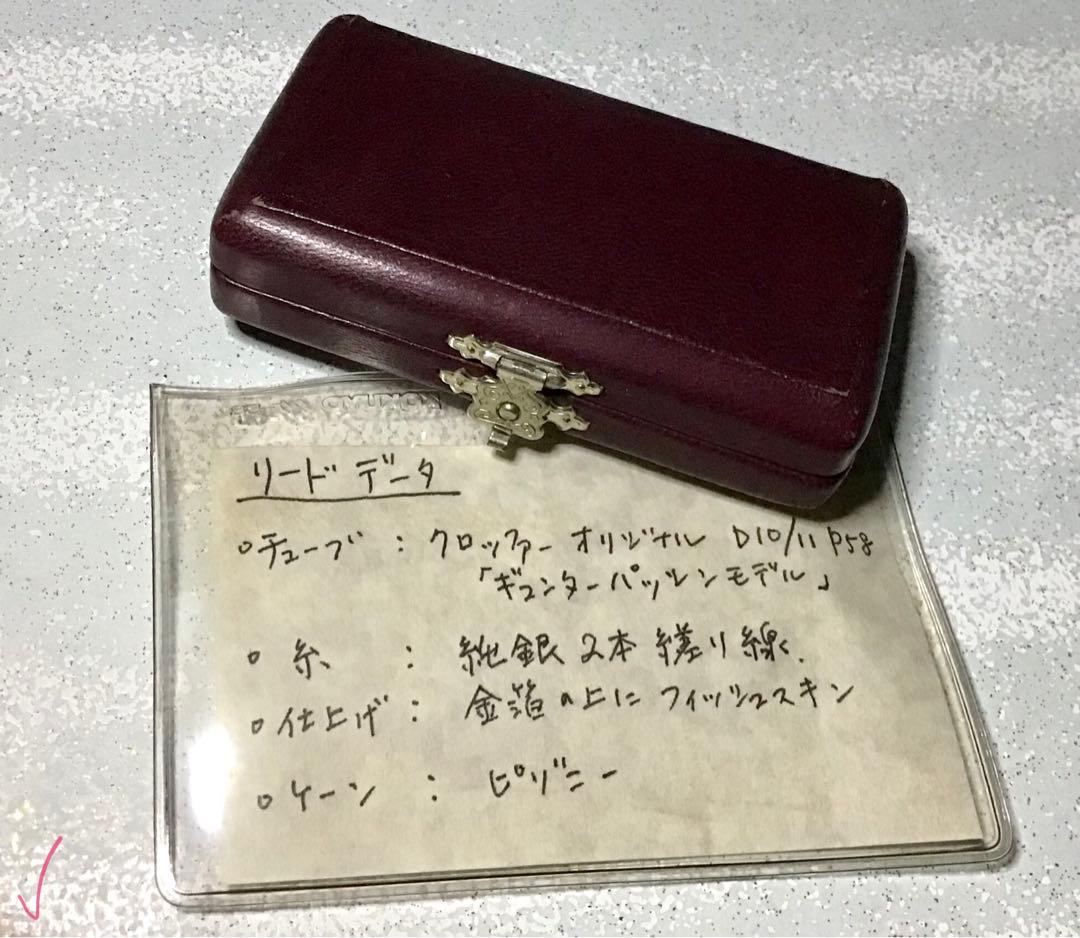 リード データ
○チューブ : クロッファー オリジナル D10/11 P58
「ギュンターパッシンモデル」
○ 糸 : 純銀2本 縒り線.
○仕上げ : 金箔の上に フィッシュスキン
○ケーン : ピゾニー